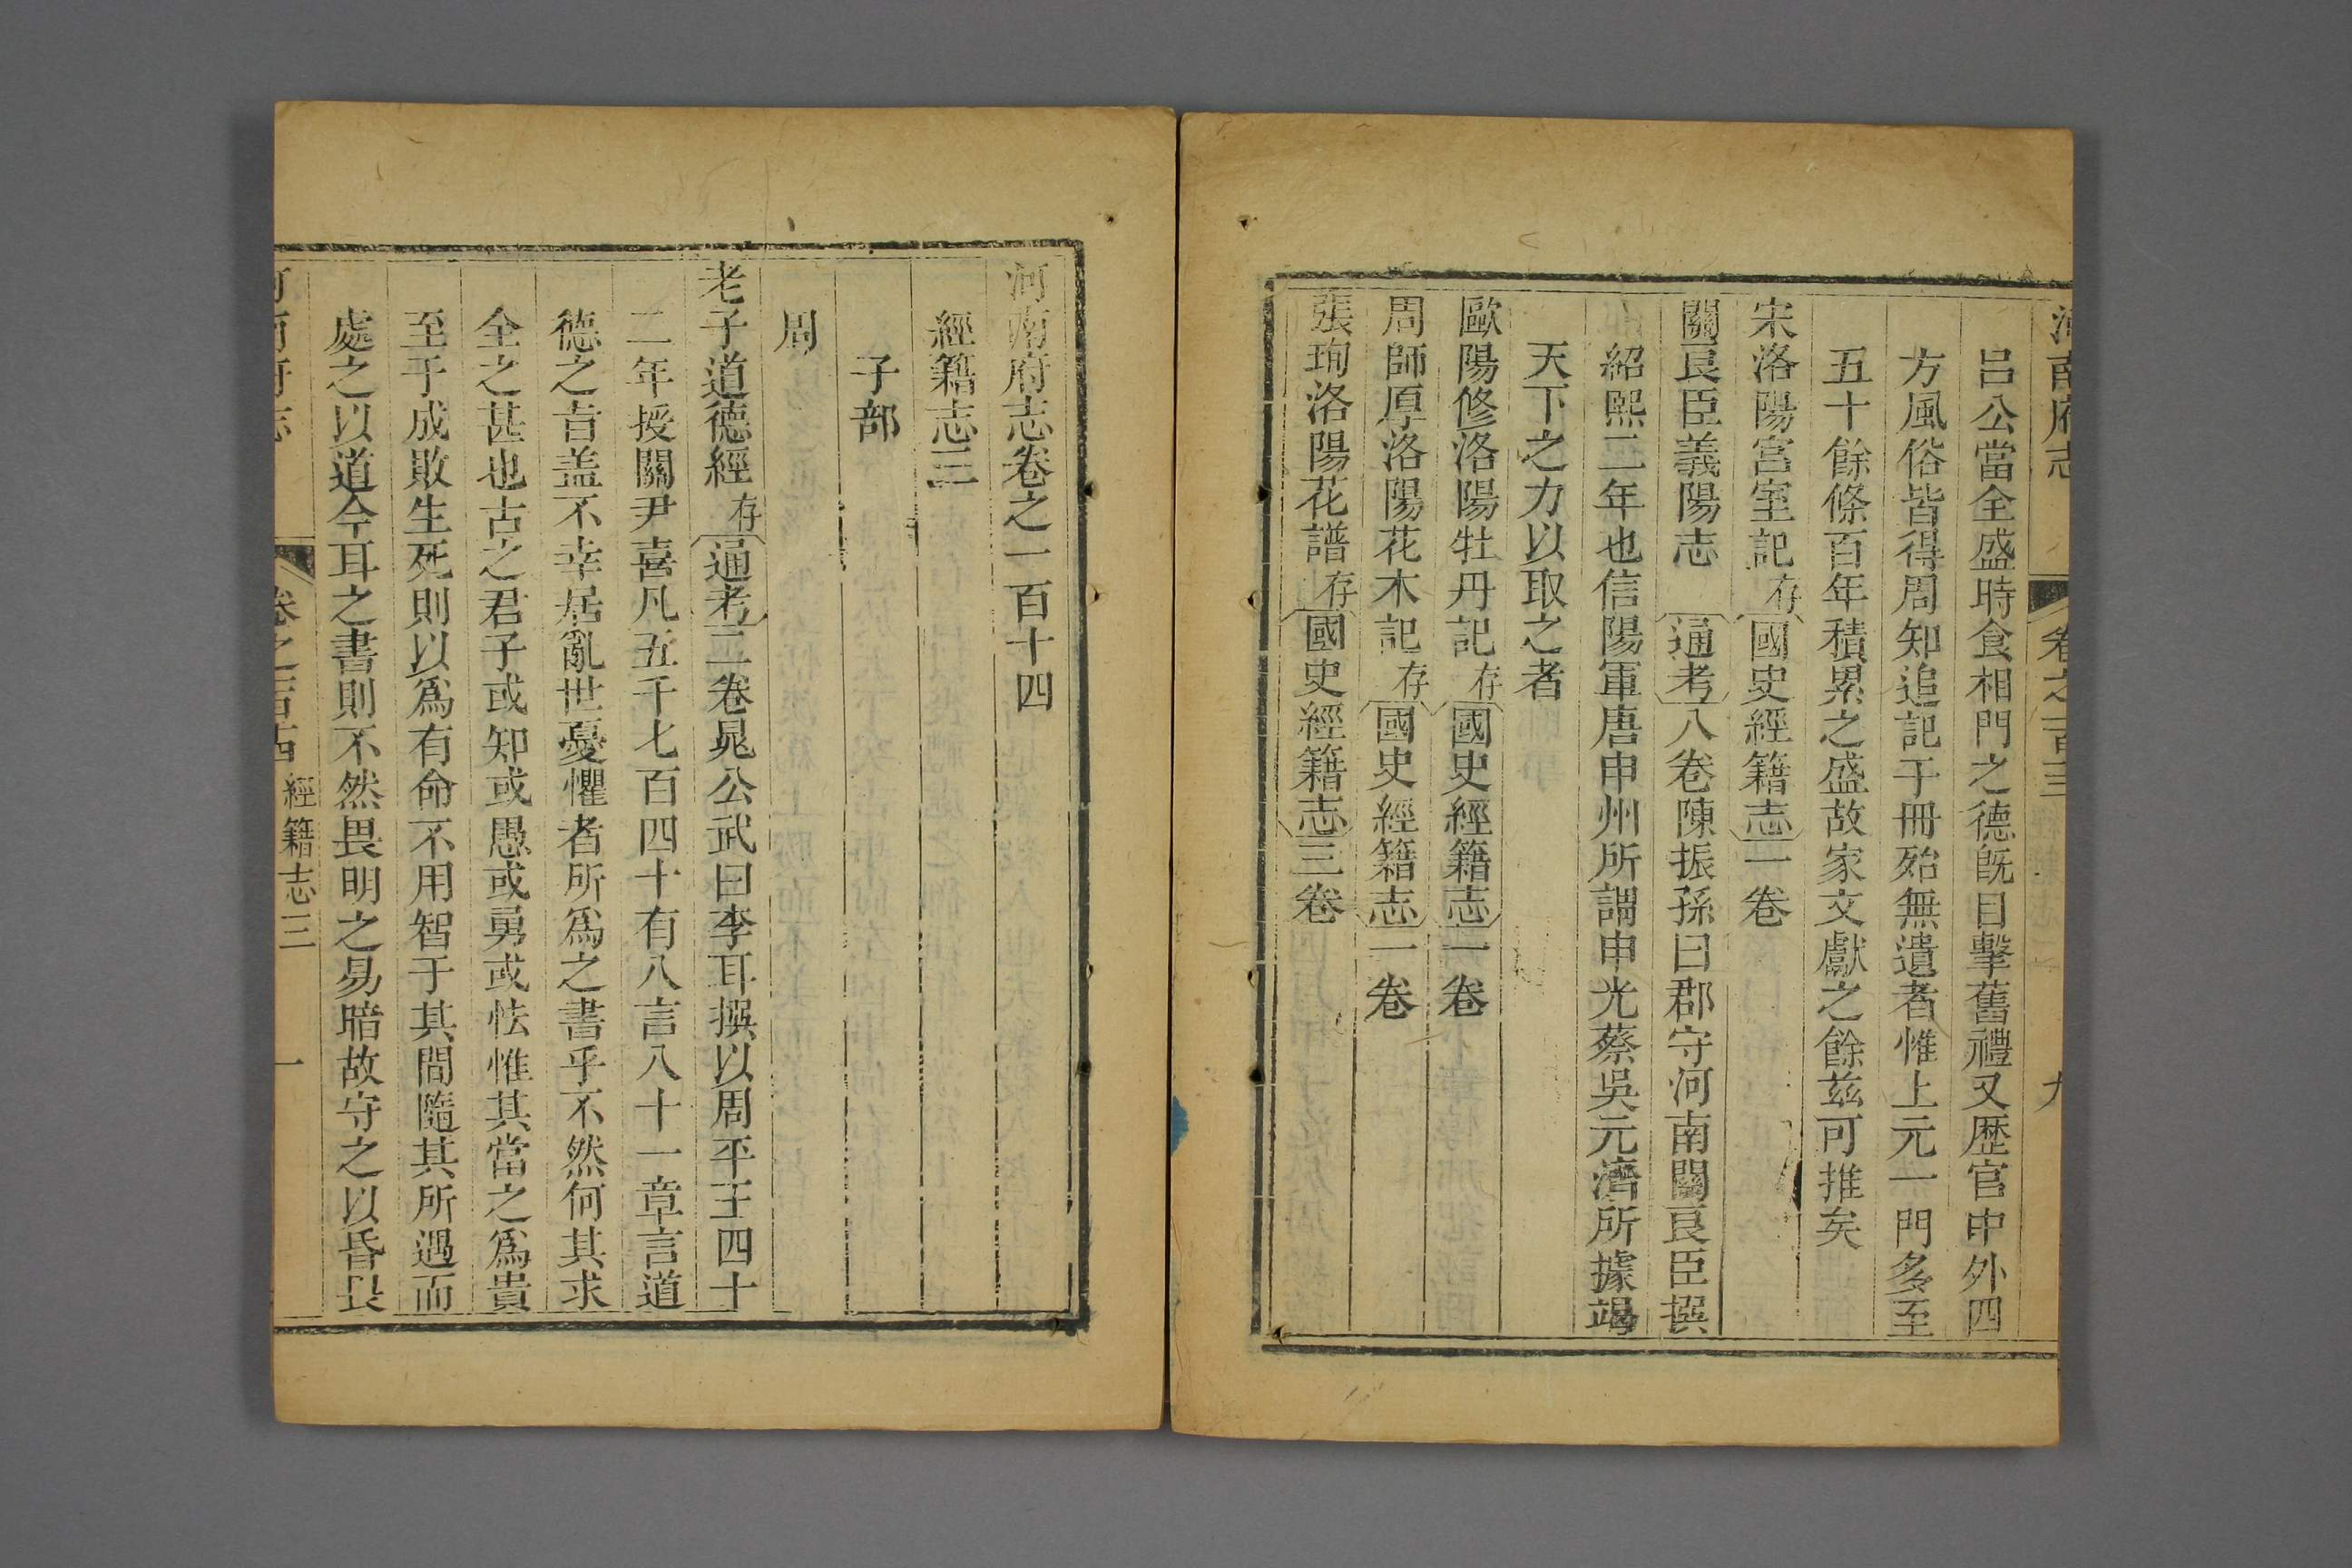 河南府志
卷之一百十三
九
呂公當全盛時食相門之德旣目擊舊禮又歷官中外四
方風俗皆得周知追記于冊殆無遺者惟上元一門多至
五十餘條百年積累之盛故家文獻之餘茲可推矣
宋洛陽宮室記存國史經籍志一卷
關良臣義陽志 通考八卷陳振孫曰郡守河南關良臣撰
紹熙二年也信陽軍唐申州所謂申光蔡吳元濟所據竭
天下之力以取之者
歐陽修洛陽牡丹記存國史經籍志一卷
周師厚洛陽花木記存國史經籍志一卷
張珣洛陽花譜存國史經籍志三卷
河南府志卷之一百十四
經籍志三
子部
周
老子道德經存通考二卷晁公武曰李耳撰以周平王四十
二年授關尹喜凡五千七百四十有八言八十一章言道
德之旨盖不幸居亂世憂懼者所爲之書乎不然何其求
全之甚也古之君子或知或愚或勇或怯惟其當之爲貴
至于成敗生死則以爲有命不用智于其間隨其所遇而
處之以道今耳之書則不然畏明之易暗故守之以昏畏
河南府志
卷之一百十四 經籍志三
一